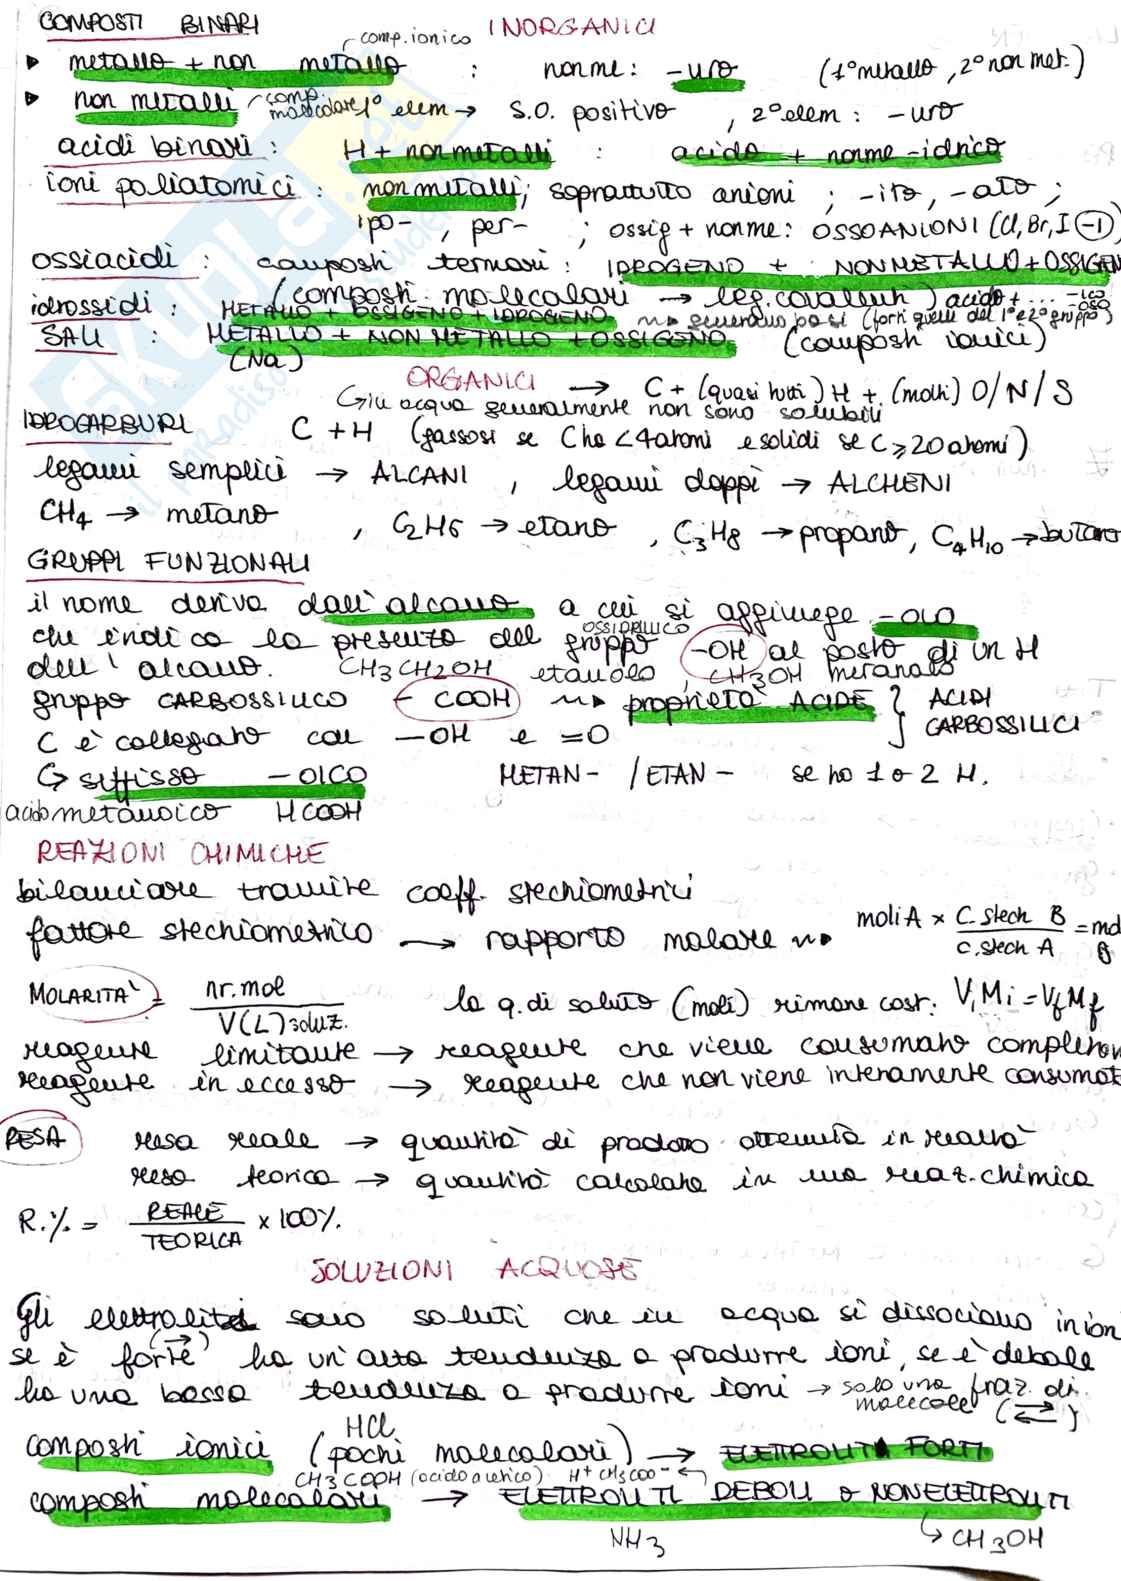 COMPOSTI BINARI INORGANICI
comp. ionico
▸ metallo + non metallo : nonme: -uro (1° metallo, 2° non met.)
▸ non metalli comp. molecolare 1° elem → S.O. positivo , 2° elem : -uro
acidi binari : H + non metalli : acido + nonme -idrico
ioni poliatomici : non metalli; soprattutto anioni ; -ito, -ato ;
ipo- , per- ; ossig + nonme: OSSOANIONI (Cl, Br, I -1)
ossiacidi : composti ternari : IDROGENO + NON METALLO + OSSIGEN
(composti molecolari → leg. covalenti) acido + ... -ico -oso
idrossidi : METALLO + OSSIGENO + IDROGENO ~> generano basi (forti quelle del 1° e 2° gruppo)
SALI : METALLO + NON METALLO + OSSIGENO (composti ionici)
(Na)
ORGANICI → C + (quasi tutti) H + (molti) O/N/S
↳ in acqua generalmente non sono solubili
IDROCARBURI C + H (gassosi se C ha <4 atomi e solidi se C ≥ 20 atomi)
legami semplici → ALCANI , legami doppi → ALCHENI
CH4 → metano , C2H6 → etano , C3H8 → propano, C4H10 → butano
GRUPPI FUNZIONALI
il nome deriva dall'alcano a cui si aggiunge -OLO
che indica la presenza del gruppo OSSIDRILICO -OH al posto di un H
dell'alcano. CH3CH2OH etanolo , CH3OH metanolo
gruppo CARBOSSILICO - COOH ~> proprietà ACIDE } ACIDI CARBOSSILICI
C è collegato con -OH e =O
↳ suffisso -OICO METAN- / ETAN- se ho 1 o 2 H.
acido metanoico HCOOH
REAZIONI CHIMICHE
bilanciare tramite coeff. stechiometrici
fattore stechiometrico → rapporto molare ~> moli A × C. stech B / C. stech A = mol B
MOLARITA' = nr. mol / V(L) soluz. la q. di soluto (moli) rimane cost: ViMi = VfMf
reagente limitante → reagente che viene consumato completam
reagente in eccesso → reagente che non viene interamente consumat
RESA resa reale → quantità di prodotto ottenuta in realtà
resa teorica → quantità calcolata in una reaz. chimica
R.% = REALE / TEORICA × 100%.
SOLUZIONI ACQUOSE
Gli elettroliti sono soluti che in acqua si dissociano in ion
se è forte (→) ha un'alta tendenza a produrre ioni, se è debole
ha una bassa tendenza a produrre ioni → solo una fraz. di molecole (⇄)
composti ionici (pochi molecolari) HCl → ELETTROLITI FORTI
CH3COOH (acido acetico) H+ CH3COO- ↩
composti molecolari → ELETTROLITI DEBOLI o NON ELETTROLITI
NH3 ↳ CH3OH